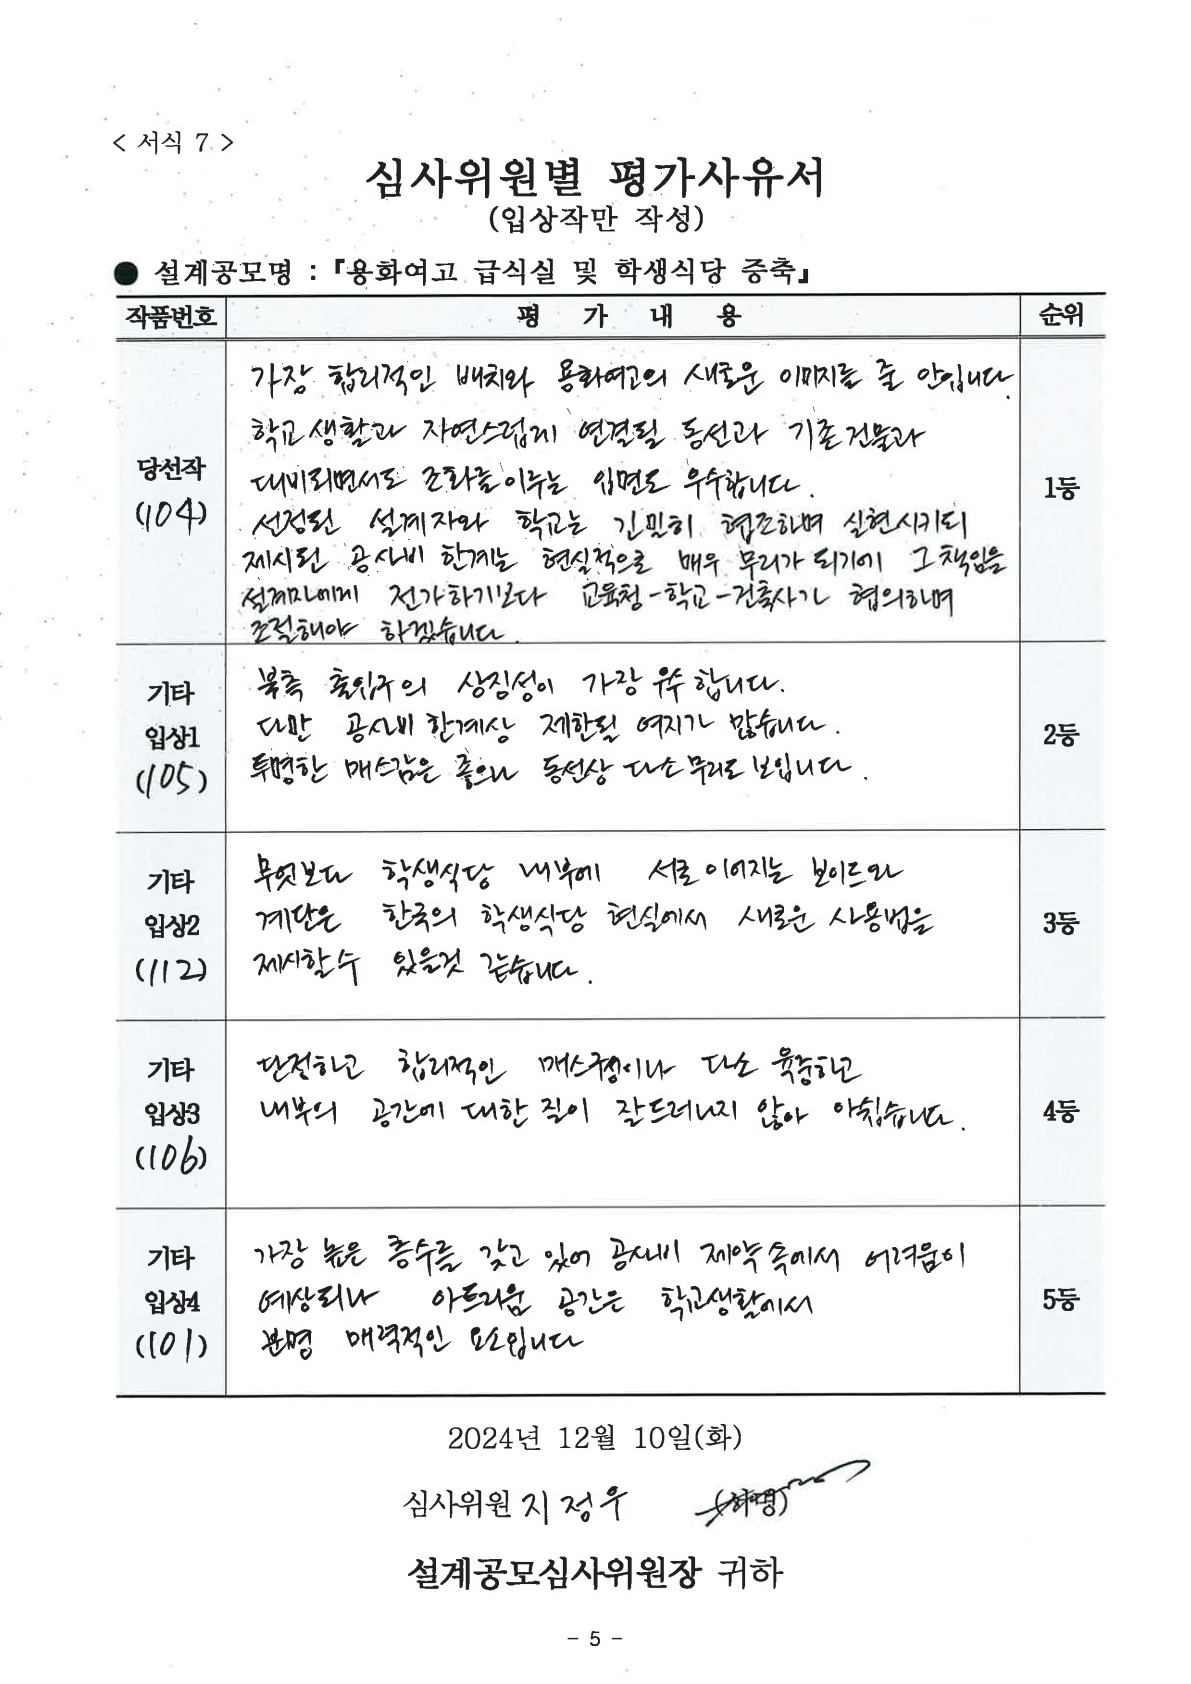 < 서식 7 >
심사위원별 평가사유서
(입상작만 작성)
● 설계공모명 : 『용화여고 급식실 및 학생식당 증축』
작품번호 평 가 내 용 순위
당선작
(104)
가장 합리적인 배치와 용화여고의 새로운 이미지를 줄 안입니다
학교생활과 자연스럽게 연결될 동선과 기존건물과
대비되면서도 조화를이루는 입면도 우수합니다.
선정된 설계자와 학교는 긴밀히 협조하며 실현시키되
제시된 공사비 한계는 현실적으로 매우 무리가 되기에 그 책임을
설계자에게 전가하기보다 교육청-학교-건축사가 협의하며
조절해야 하겠습니다.
1등
기타
입상1
(105)
북측 출입구의 상징성이 가장 우수합니다.
다만 공사비 한계상 제한될 여지가 많습니다.
투명한 매스감은 좋으나 동선상 다소무리로 보입니다.
2등
기타
입상2
(112)
무엇보다 학생식당 내부에 서로이어지는 보이드와
계단은 한국의 학생식당 현실에서 새로운 사용법을
제시할수 있을것 같습니다.
3등
기타
입상3
(106)
단정하고 합리적인 매스구성이나 다소 육중하고
내부의 공간에 대한 질이 잘드러나지 않아 아쉽습니다.
4등
기타
입상4
(101)
가장 높은 층수를 갖고 있어 공사비 제약속에서 어려움이
예상되나 아트리움 공간은 학교생활에서
분명 매력적인 요소입니다
5등
2024년 12월 10일(화)
심사위원 지정우 (서명)
설계공모심사위원장 귀하
- 5 -